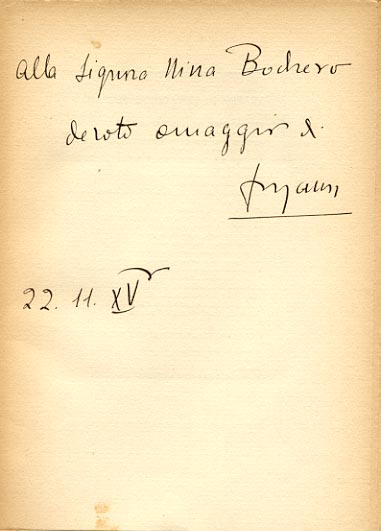 Alla Signora Nina Bochero
devoto omaggio di
22. 11. XV